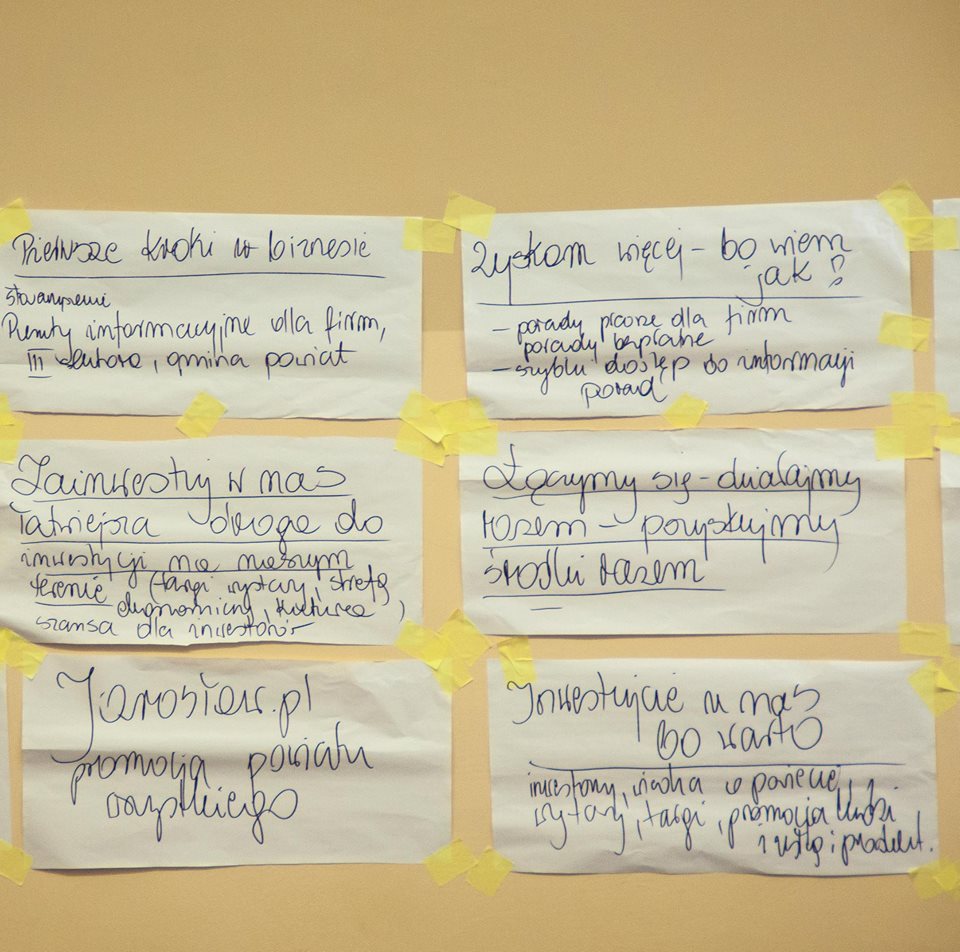 Pierwsze kroki w biznesie
stowarzyszeni
Punkty informacyjne dla firm,
III sektora, gmina powiat
Zyskam więcej - bo wiem
jak?
- porady prawne dla firm
porady bezpłatne
- szybki dostęp do informacji
porad
Zainwestuj w nas
łatwiejsza droga do
inwestycji na naszym
terenie (targi wystawy, strefy
ekonomiczny, kulturę,
szansa dla inwestorów
Łączymy się - działajmy
razem - pozyskujmy
środki razem
Jarosław.pl
promocja powiatu
wszystkiego
Inwestujcie u nas
bo warto
inwestorzy, w powiecie,
wystawy, targi, promocja
i usług i produkt.